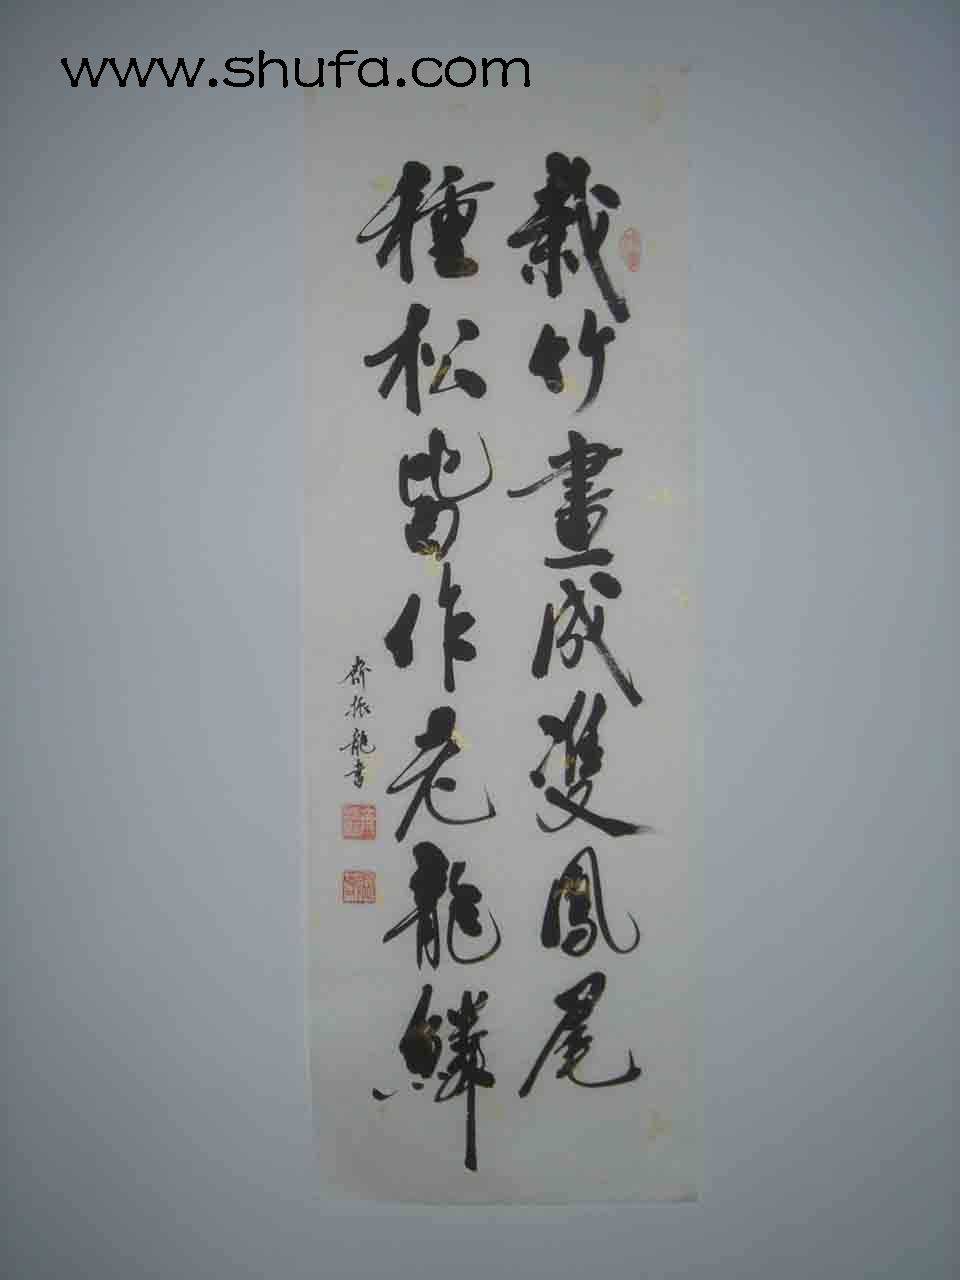 www.shufa.com
栽竹畫成雙鳳尾
種松皆作老龍鱗
齊振龍書